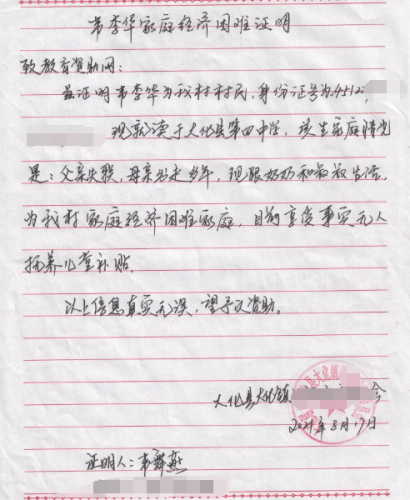 韦李华家庭经济困难证明
致教育资助网:
兹证明韦李华为我村村民,身份证号为4512
现就读于大化县第四中学,该生家庭情况
是:父亲失联,母亲出走多年,现跟奶奶和叔叔生活,
为我村家庭经济困难家庭,目前享受事实无人
抚养儿童补贴。
以上信息真实无误,望予以资助。
大化县大化镇
2021年8月17日
证明人:韦